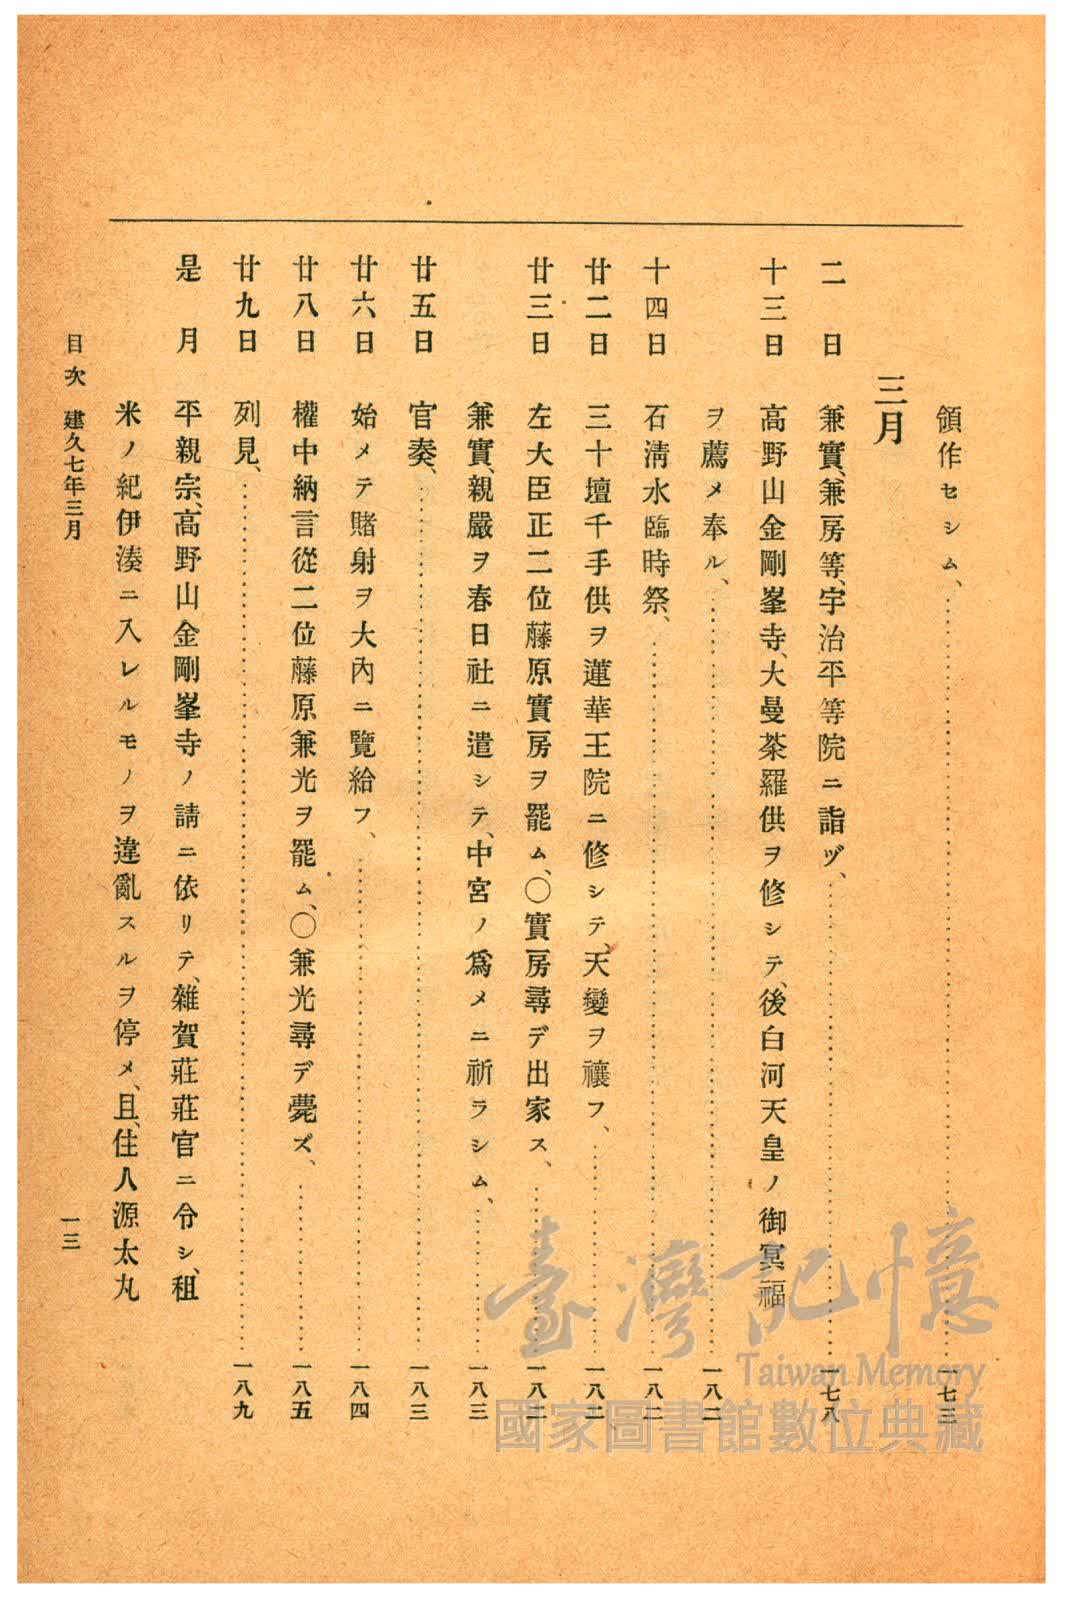 領作セシム、……一七三
三月
二日　兼實、兼房等、宇治平等院ニ詣ヅ、……一七八
十三日　高野山金剛峯寺、大曼荼羅供ヲ修シテ、後白河天皇ノ御冥福
ヲ薦メ奉ル、……一八二
十四日　石淸水臨時祭、……一八二
廿二日　三十壇千手供ヲ蓮華王院ニ修シテ、天變ヲ禳フ、……一八二
廿三日　左大臣正二位藤原實房ヲ罷ム、〇實房尋デ出家ス、……一八二
兼實、親嚴ヲ春日社ニ遣シテ、中宮ノ爲メニ祈ラシム、……一八三
廿五日　官奏、……一八三
廿六日　始メテ賭射ヲ大內ニ覽給フ、……一八四
廿八日　權中納言從二位藤原兼光ヲ罷ム、〇兼光尋デ薨ズ、……一八五
廿九日　列見、……一八九
是月　平親宗、高野山金剛峯寺ノ請ニ依リテ、雜賀莊莊官ニ令シ、租
米ノ紀伊湊ニ入レルモノヲ違亂スルヲ停メ、且、住人源太丸
目次　建久七年三月　一三
臺灣記憶
Taiwan Memory
國家圖書館數位典藏